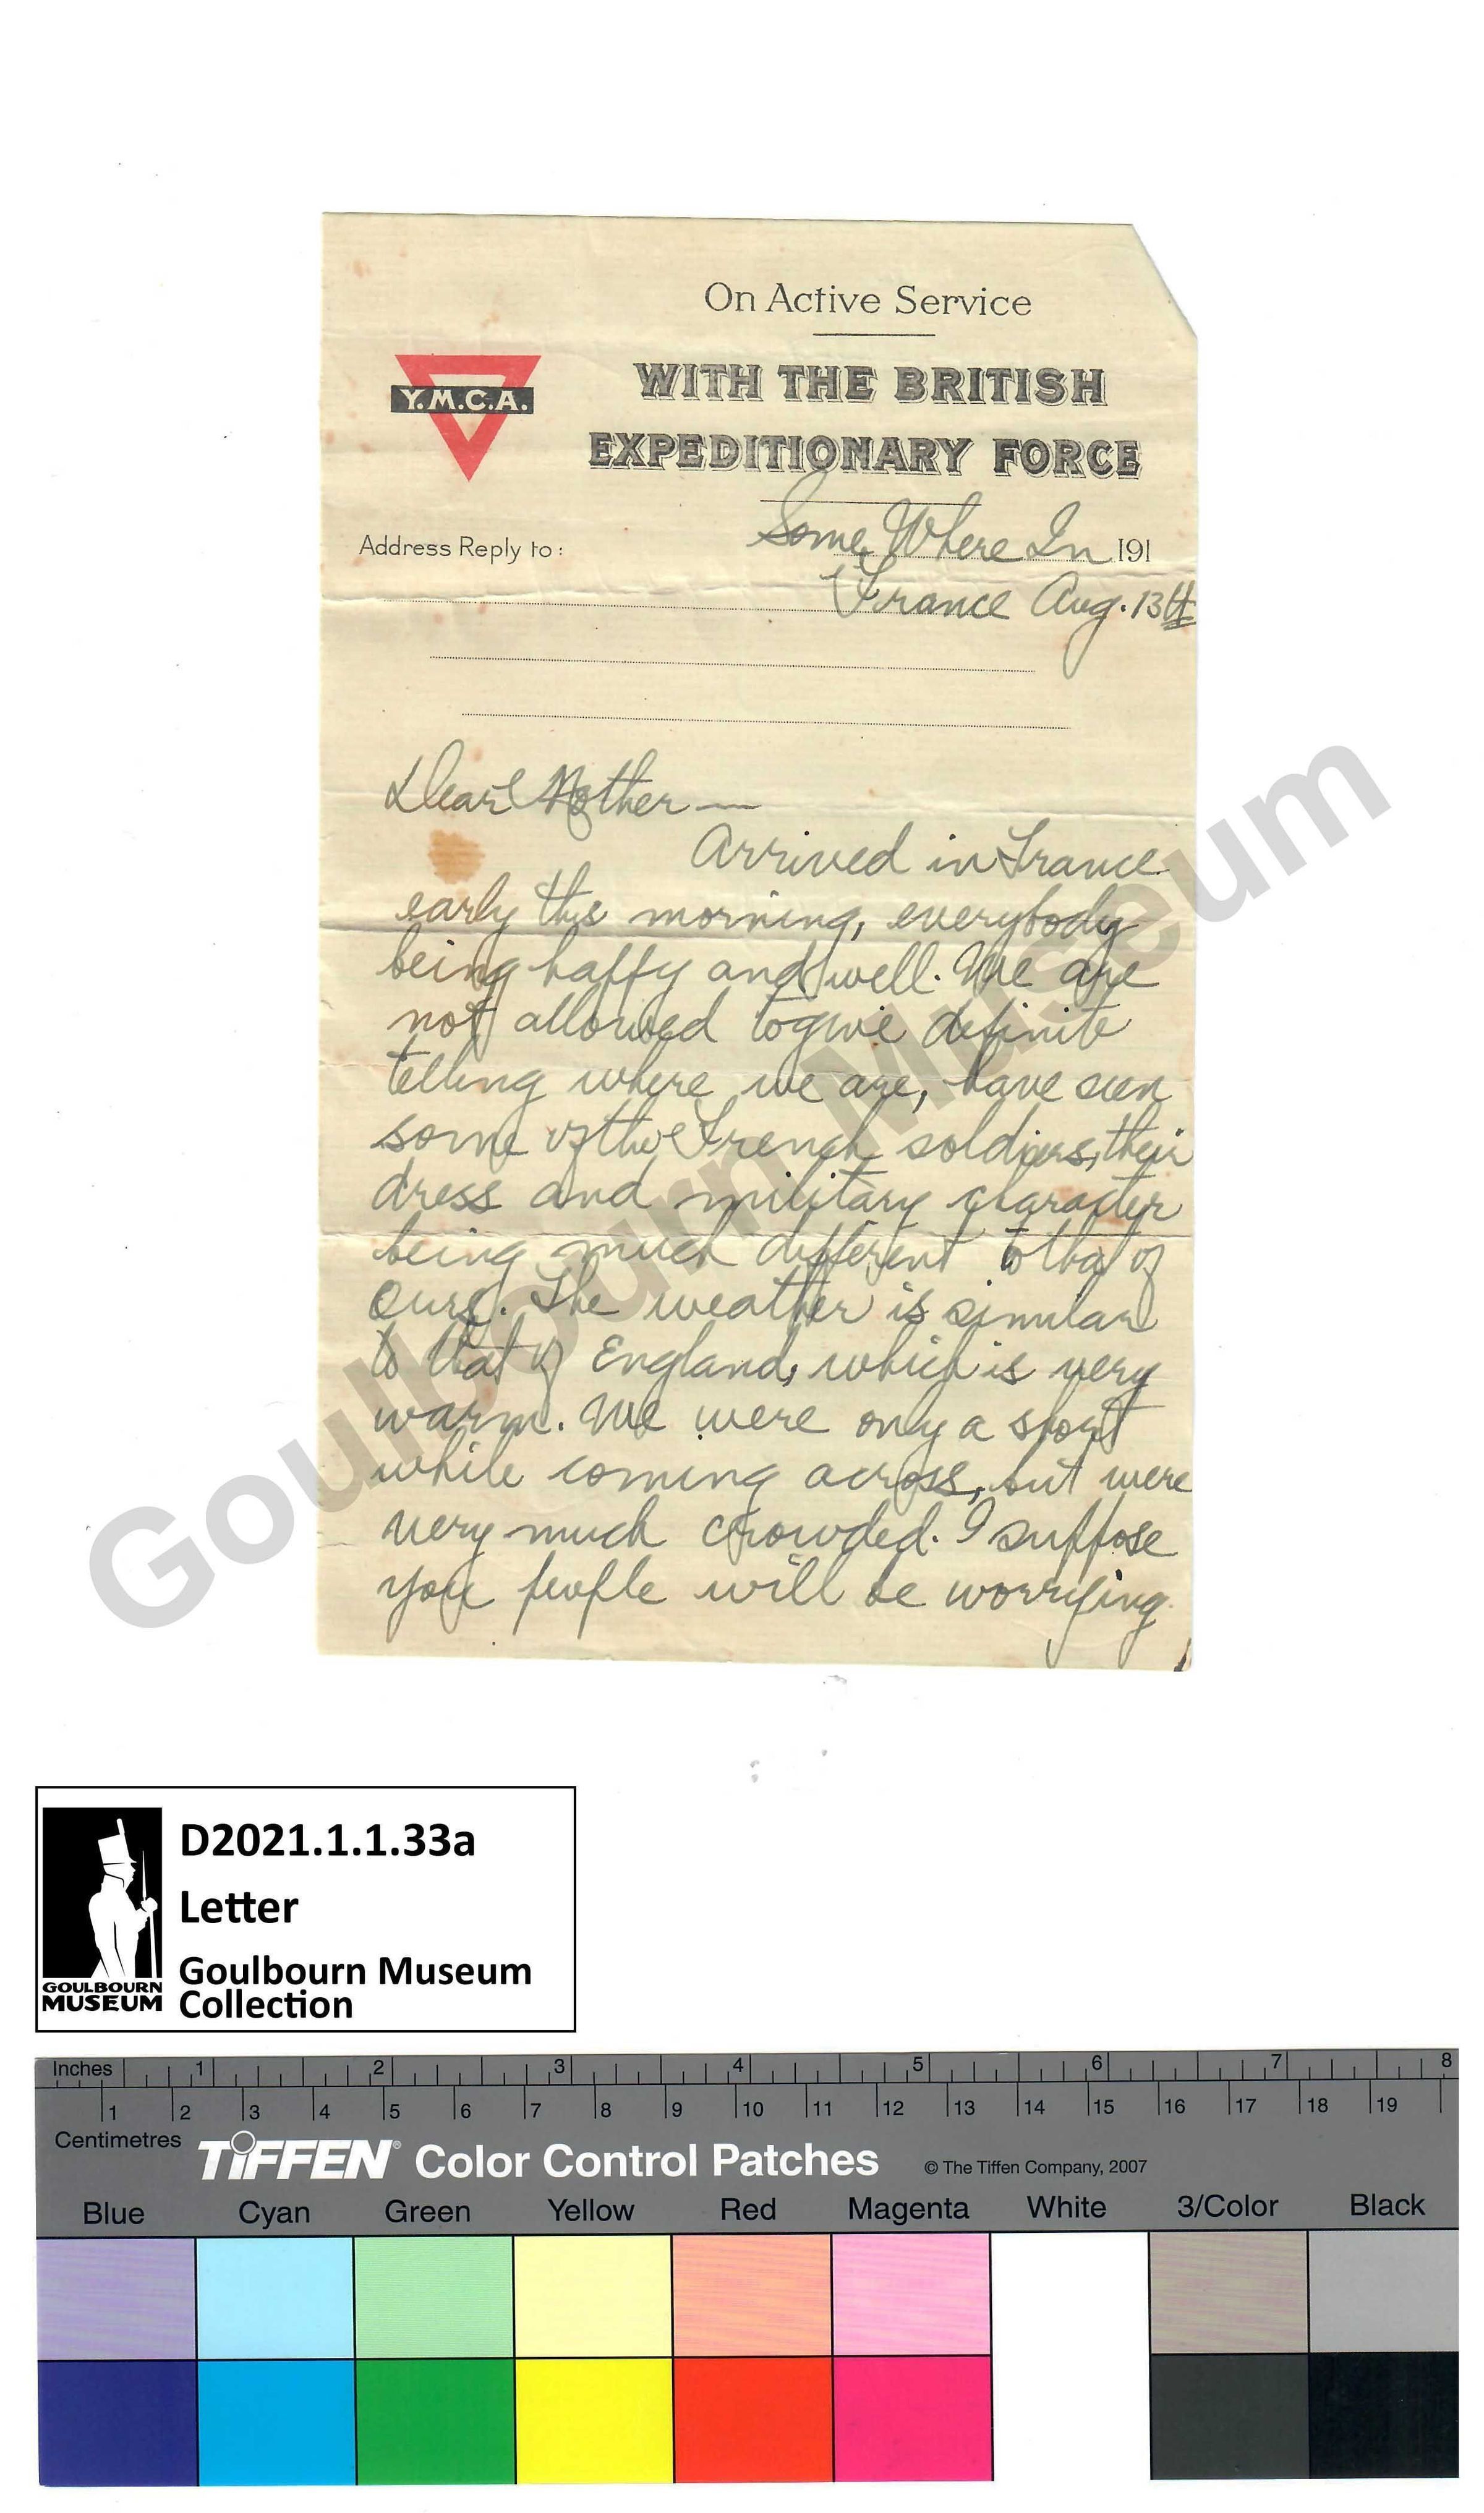 On Active Service
Y.M.C.A.
WITH THE BRITISH
EXPEDITIONARY FORCE
Address Reply to:
Some Where In 191
France Aug. 13th
Dear Mother—
Arrived in France
early this morning, everybody
being happy and well. We are
not allowed to give definite
telling where we are, have seen
some of the French soldiers, their
dress and military character
being much different to that of
ours. The weather is similar
to that of England, which is very
warm. We were only a short
while coming across, but were
very much crowded. I suppose
you people will be worrying
Goulbourn Museum
D2021.1.1.33a
Letter
Goulbourn Museum
Collection
GOULBOURN
MUSEUM
Inches 1 2 3 4 5 6 7 8
1 2 3 4 5 6 7 8 9 10 11 12 13 14 15 16 17 18 19
Centimetres
TIFFEN® Color Control Patches © The Tiffen Company, 2007
Blue Cyan Green Yellow Red Magenta White 3/Color Black